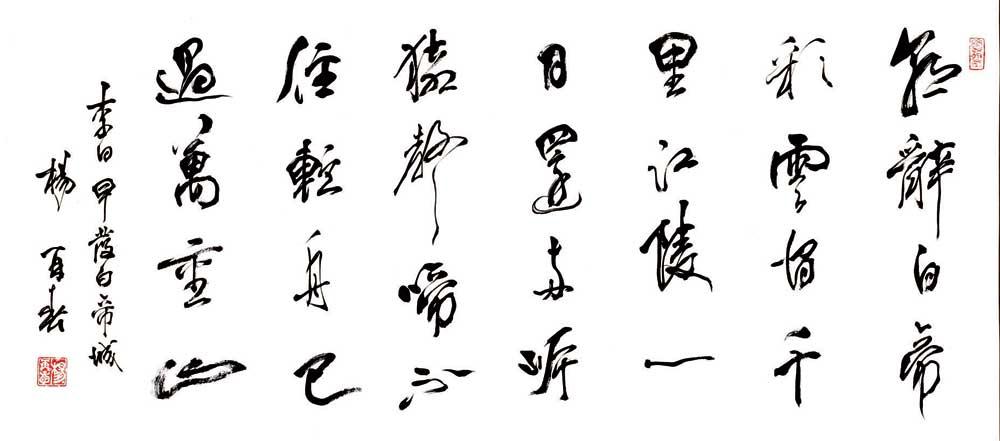 朝辭白帝
彩雲間千
里江陵一
日還兩岸
猿聲啼不
住輕舟已
過萬重山
李白早發白帝城
楊春